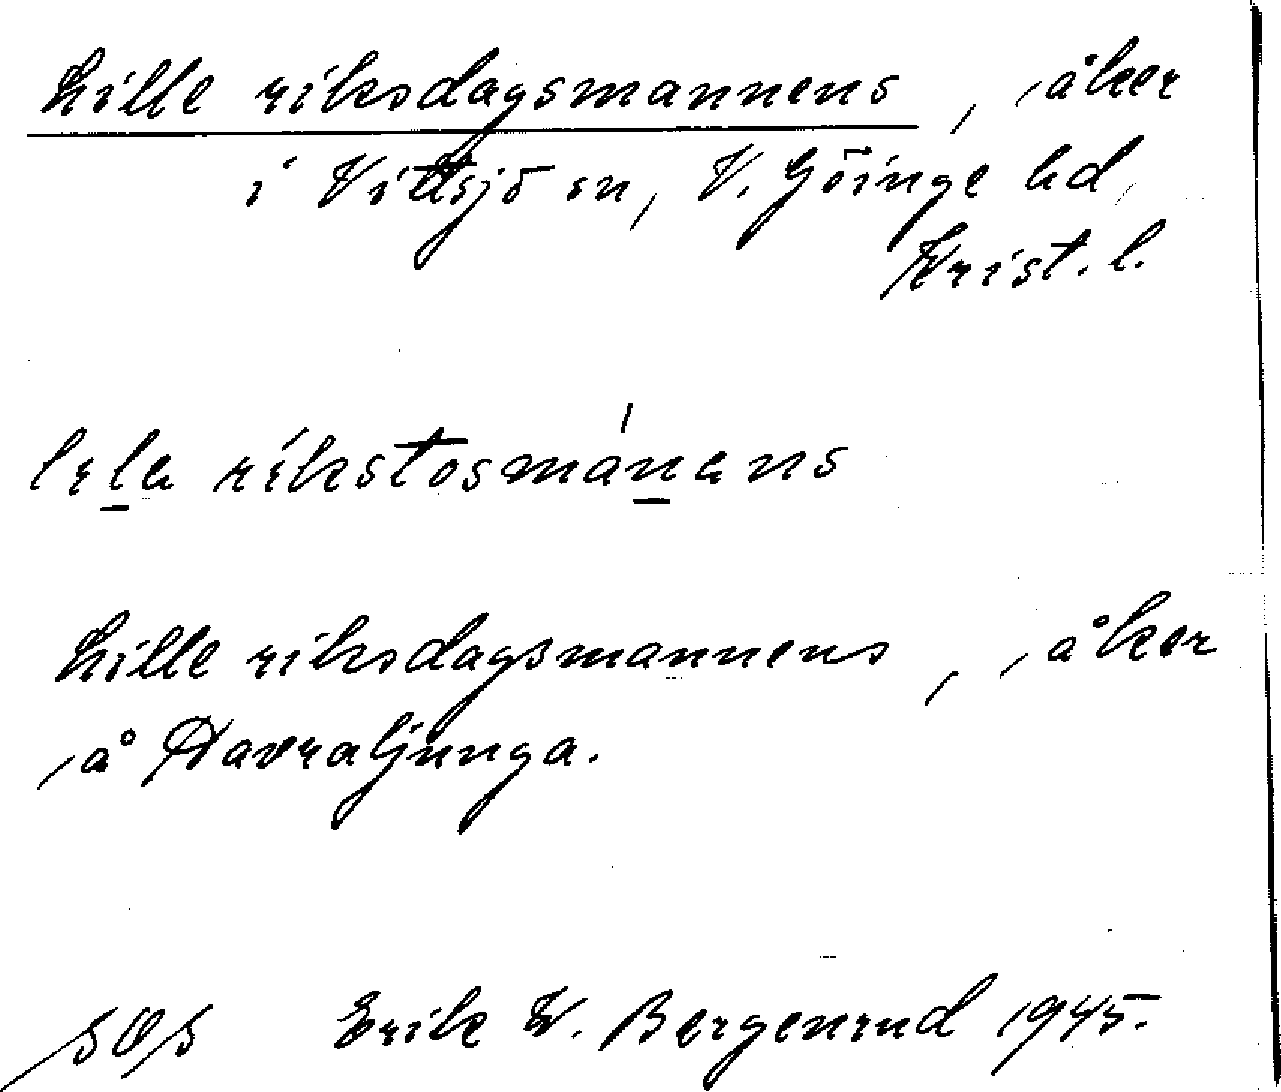 Lille riksdagsmannens, åker
i Vittsjö sn, V. Göinge hd,
Krist. l.
rikstosmánans
Lille riksdagsmannens, åker
å Davraljunga.
Erik W. Bergenrud 1945.